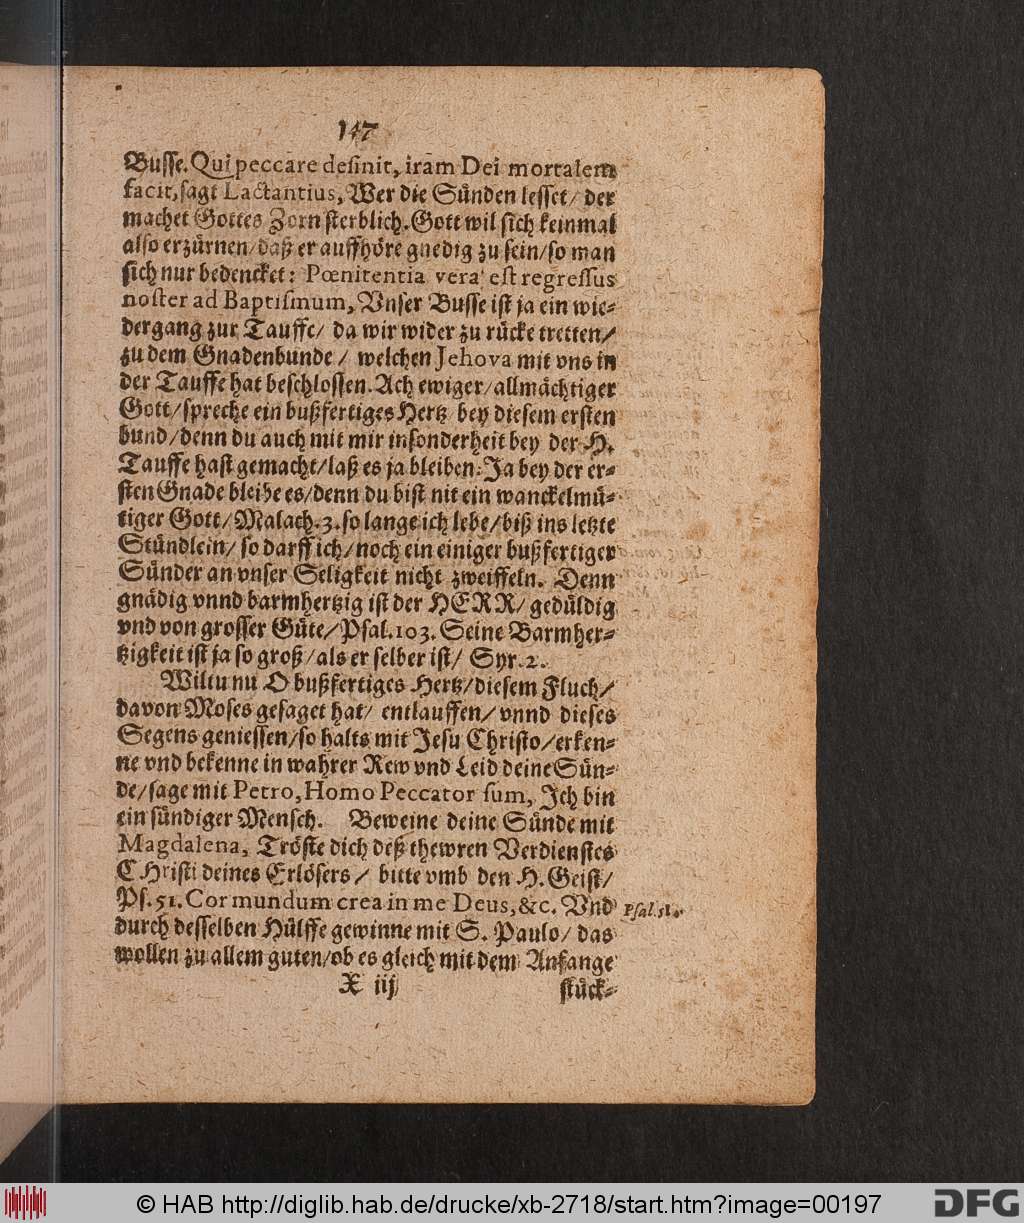 147
Busse. Qui peccare desinit, iram Dei mortalem
facit, sagt Lactantius, Wer die Sünden lesset/ der
machet Gottes Zorn sterblich. Gott wil sich keinmal
also erzürnen/ daß er auffhöre gnedig zu sein/ so man
sich nur bedencket: Pœnitentia vera est regressus
noster ad Baptismum, Vnser Busse ist ja ein wie-
dergang zur Tauffe/ da wir wider zu rücke tretten/
zu dem Gnadenbunde/ welchen Jehova mit vns in
der Tauffe hat beschlossen. Ach ewiger/ allmächtiger
Gott/ spreche ein bußfertiges Hertz bey diesem ersten
bund/ denn du auch mit mir insonderheit bey der H.
Tauffe hast gemacht/ laß es ja bleiben: Ja bey der er-
sten Gnade bleibe es/ denn du bist nit ein wanckelmü-
tiger Gott/ Malach. 3. so lange ich lebe/ biß ins letzte
Stündlein/ so darff ich/ noch ein einiger bußfertiger
Sünder an vnser Seligkeit nicht zweiffeln. Denn
gnädig vnnd barmhertzig ist der HERR/ gedüldig
vnd von grosser Güte/ Psal. 103. Seine Barmher-
tzigkeit ist ja so groß/ als er selber ist/ Syr. 2.
Wiltu nu O bußfertiges Hertz/ diesem Fluch/
davon Moses gesaget hat/ entlauffen/ vnnd dieses
Segens geniessen/ so halts mit Jesu Christo/ erken-
ne vnd bekenne in wahrer Rew vnd Leid deine Sün-
de/ sage mit Petro, Homo Peccator sum, Ich bin
ein sündiger Mensch. Beweine deine Sünde mit
Magdalena, Tröste dich deß thewren Verdienstes
CHristi deines Erlösers/ bitte vmb den H. Geist/
Ps. 51. Cor mundum crea in me Deus, &c. Vnd
Psal. 51.
durch desselben Hülffe gewinne mit S. Paulo/ das
wollen zu allem guten/ ob es gleich mit dem Anfange
X iij
stück-
© HAB http://diglib.hab.de/drucke/xb-2718/start.htm?image=00197
DFG